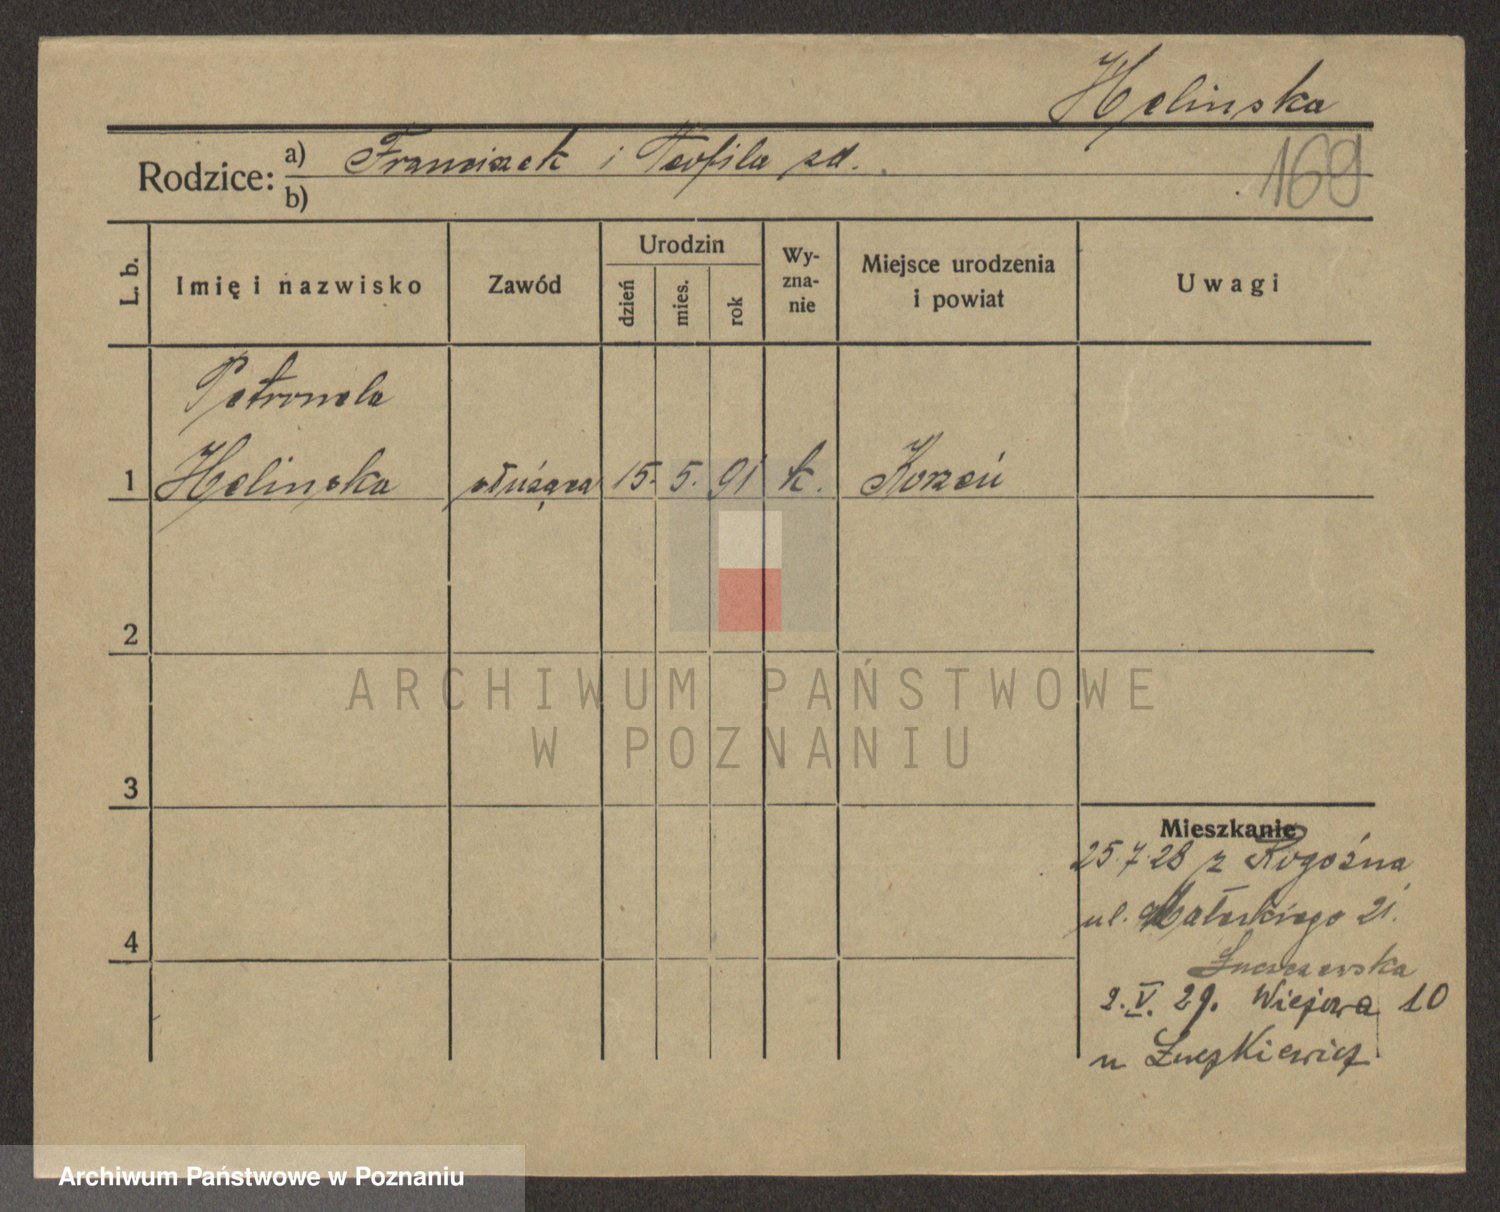 Helinska
Rodzice: a) Franciszek i Teofila zd.
b)
169
L. b.
Imię i nazwisko
Zawód
Urodzin
dzień
mies.
rok
Wy-
zna-
nie
Miejsce urodzenia
i powiat
Uwagi
Petronela
1 Helinska służąca 15. 5. 91 k. Korzeń
2
3
4
Mieszkanie
25.7.28 z Rogoźna
ul. Małeckiego 21.
2.V.29. Wiejowa 10
u Łuczkiewicz
ARCHIWUM PAŃSTWOWE
W POZNANIU
Archiwum Państwowe w Poznaniu